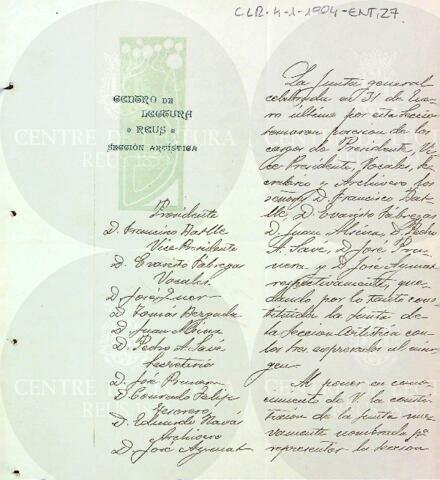 C.L.R. 4-1-1904-ENT,27
CENTRO DE
LECTURA
REUS
SECCIÓN ARTÍSTICA
Presidente
D. Francisco Batlle
Vice Presidente
D. Evaristo Fabregas
Vocales
D. José
D. Tomás Bergada
D. Juan Alsina
D. Pedro A. Savé
Secretario
D. José Prunera
D. Conrado Felip
Tesorero
D. Eduardo Navás
Archivero
D. José Aymat
La Junta general
celebrada el 31 de Ene
ro último por esta Sección
tomaron posesion de los
cargos de Presidente, Vi
ce Presidente, Vocales, Se
cretario y Archivero los
señores D. Francisco Bat
llé, D. Evaristo Fabregas
D. Juan Alsina, D. Pedro
A. Savé, D. José Pru
nera y D. José Aymat
respectivamente, que
dando por lo tanto cons
tituida la Junta de
la Seccion Artistica con
los tres expresados al mar
gen.
Al poner en cono
cimiento de V. la consti
tucion de la junta nue
vamente nombrada pª
representar la Seccion
CENTRE DE LECTURA
REUS
CENTRE DE LECTURA
REUS
CENTRE DE LECTURA
REUS